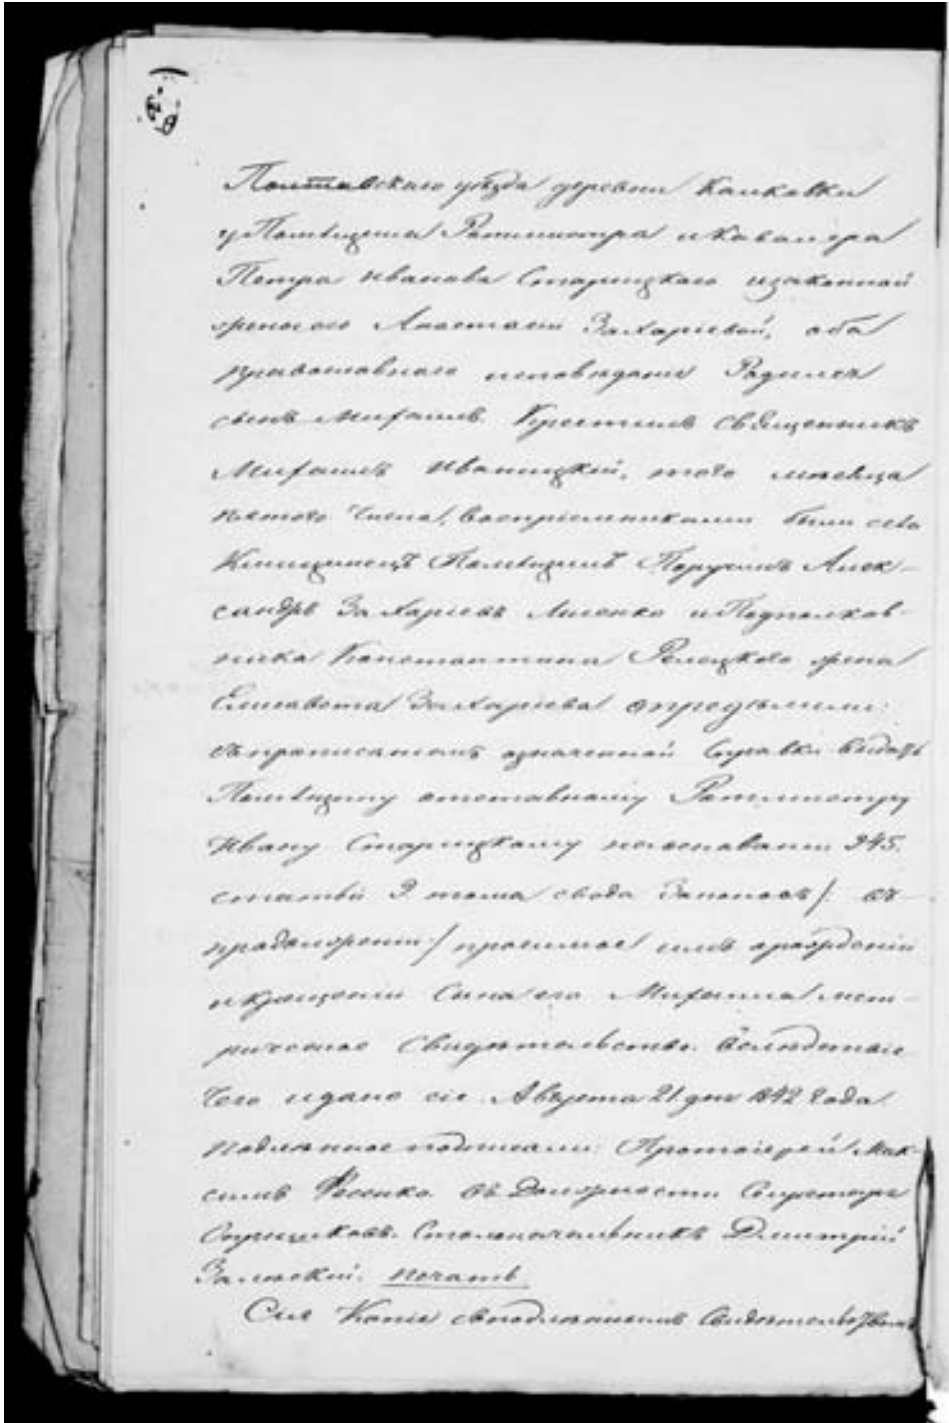 Полтавскаго уѣзда деревни
у Помѣщика Ротмистра и Кавалера
Петра Иванова Старицкаго и законной
жены его Анастасіи Захаріевой, оба
православнаго исповѣданія Родился
сынъ Михаилъ. Крестилъ Священникъ
Михаилъ Иваницкій, того мѣсяца
пятого числа, воспріемниками были села
Помѣщикъ Поручикъ Алек-
сандръ Захаріевъ и Подполков-
ника Константина жена
Елисавета Захаріева опредѣлили:
съ прописаніемъ означенной Справки выдать
Помѣщику отставному Ротмистру
Ивану Старицкому на основаніи 945.
статьи 9 тома свода Законовъ /: въ
продолженіи :/ просимое имъ о рожденіи
и крещеніи Сына его Михаила мет-
рическое Свидѣтельство. Вслѣдствіе
чего и дано сіе. Августа 21 дня 1842 года.
Подлинное подписали: Протоіерей Мак-
симъ въ Должности Секретаря
Столоначальникъ Дмитрій
Залѣскій. печать
Сія Копія съ подлиннымъ Свидѣтельствомъ